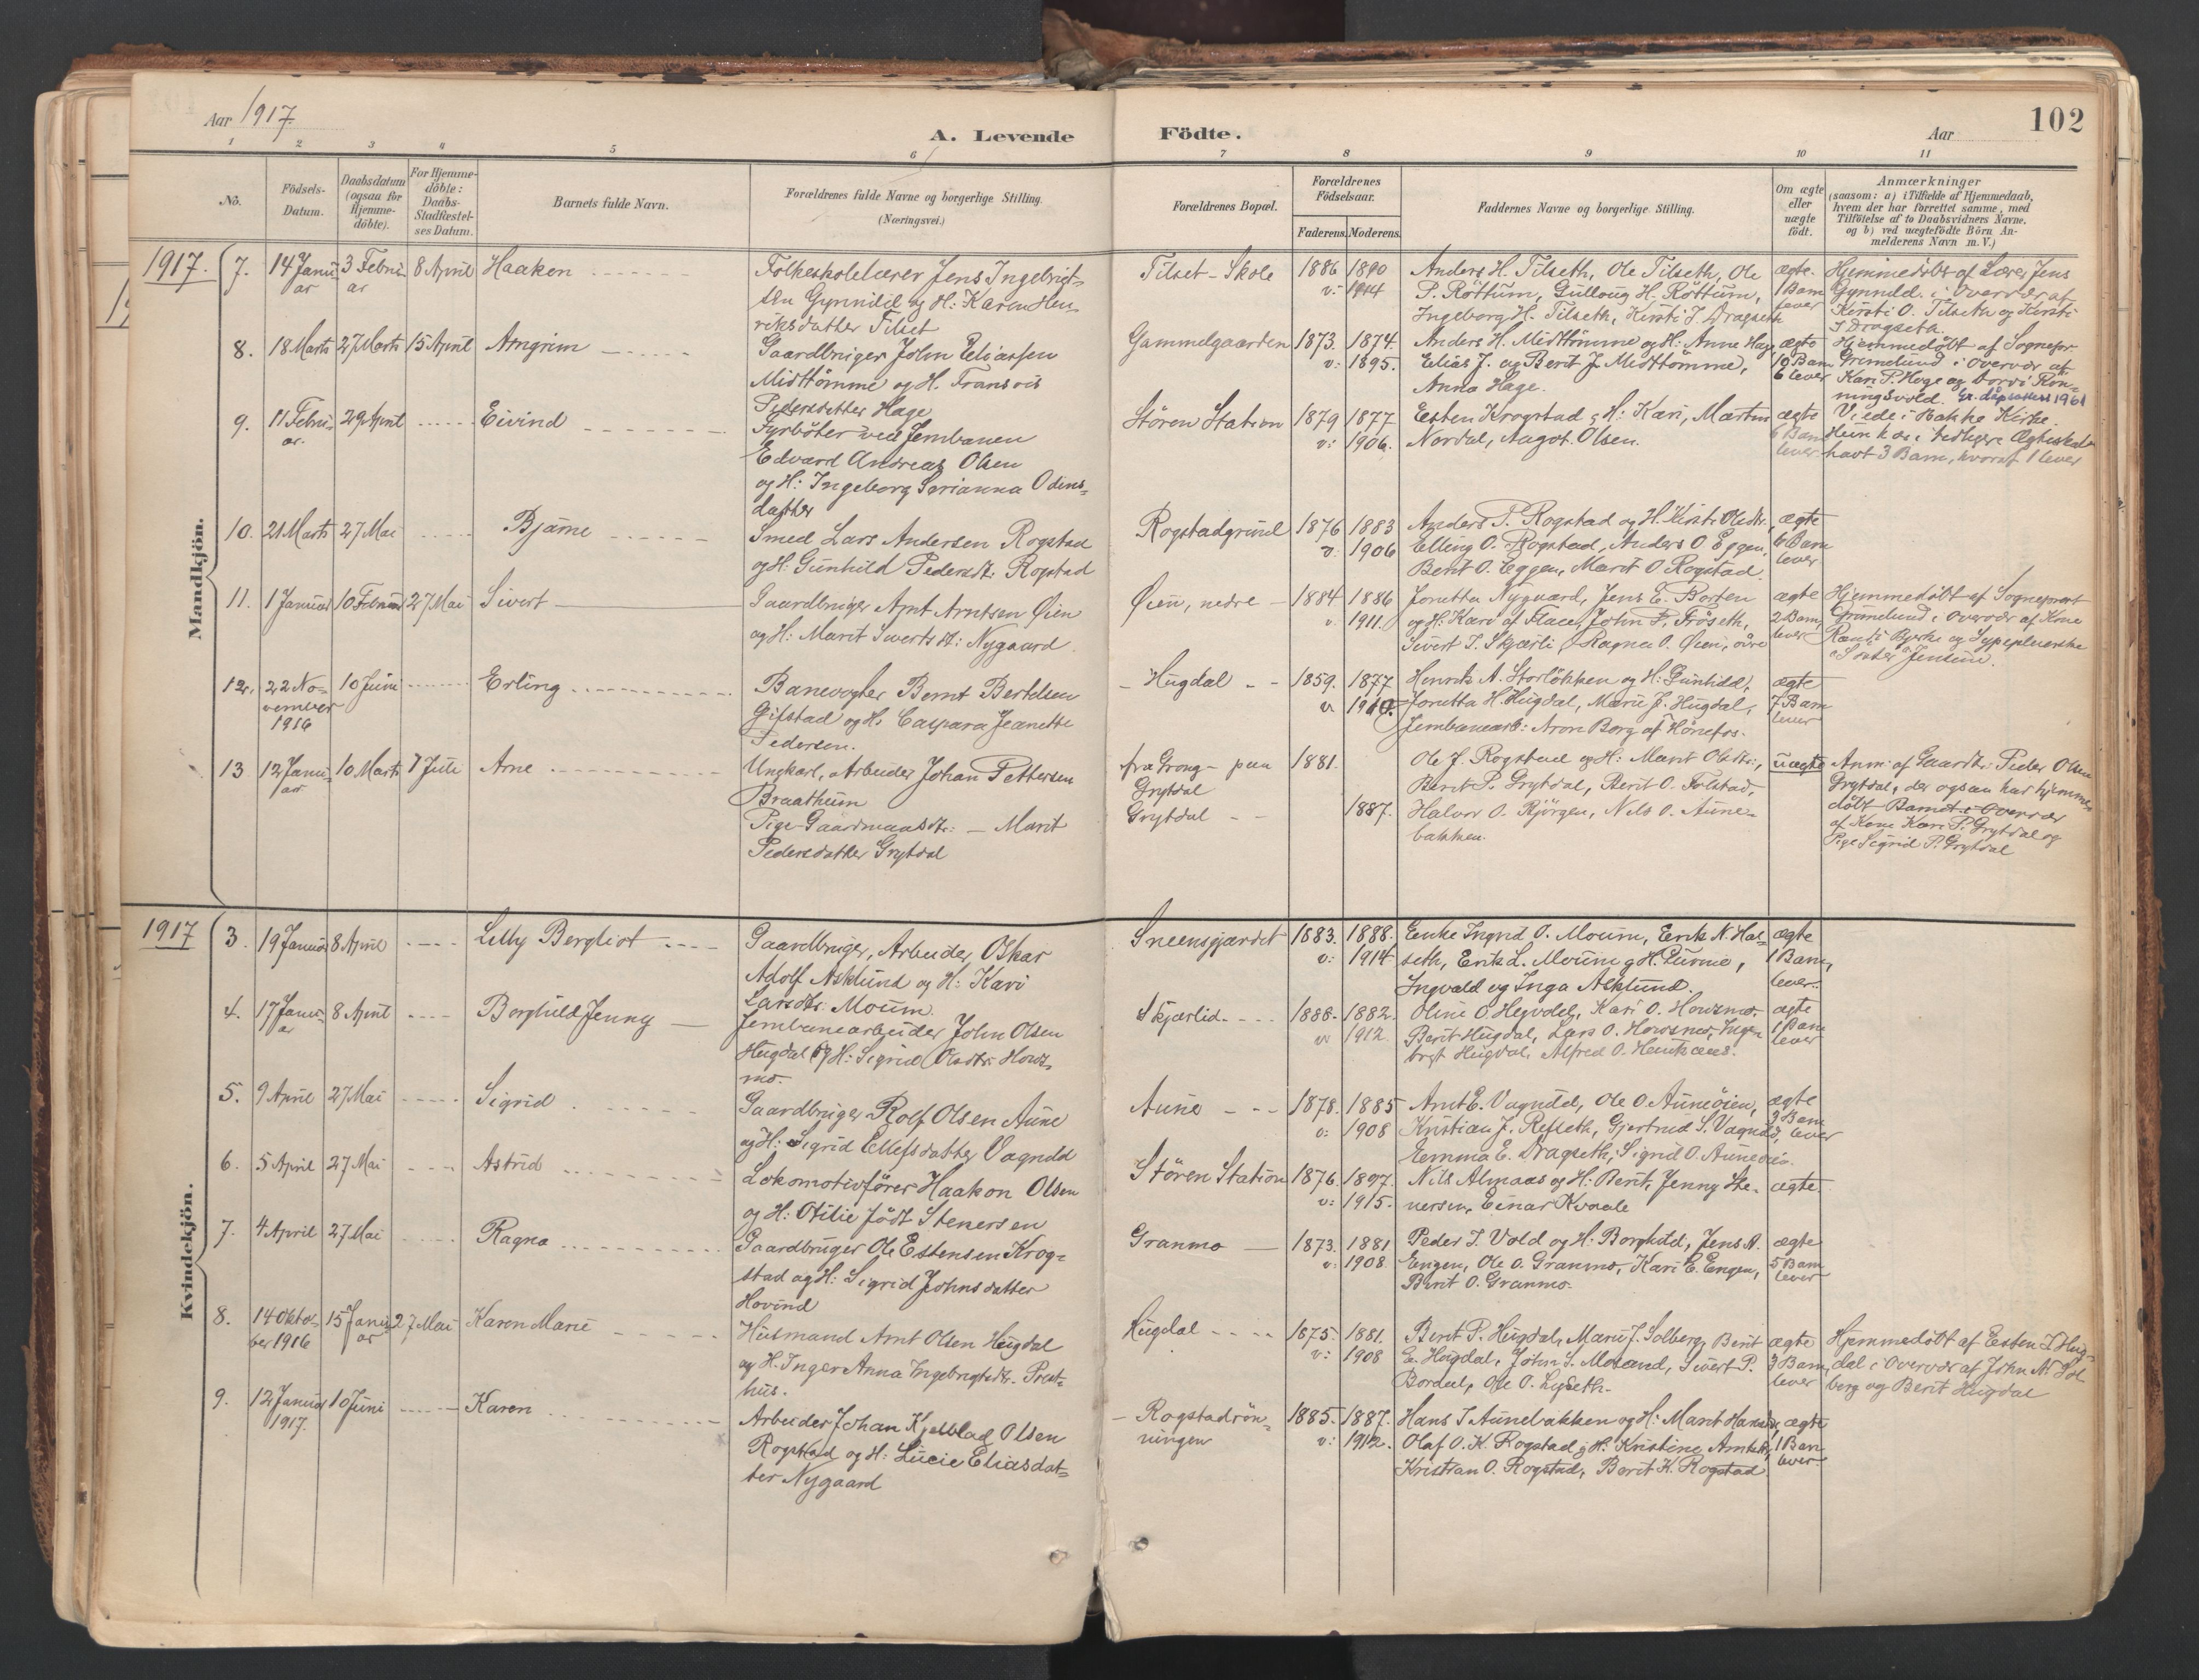 Aar 1917.
A. Levende Födte.
Aar
102
1 2 3 4 5 6 7 8 9 10 11
No.
Födsels-Datum.
Daabsdatum (ogsaa for Hjemme-döbte).
For Hjemme-döbte: Daabs-Stadfæstel-ses Datum.
Barnets fulde Navn.
Forældrenes fulde Navne og borgerlige Stilling. (Næringsvei.)
Forældrenes Bopæl.
Forældrenes Födselsaar.
Faderens. Moderens.
Faddernes Navne og borgerlige Stilling.
Om ægte eller uægte födt.
Anmærkninger
(saasom: a) i Tilfælde af Hjemmedaab, hvem der har forrettet samme, med Tilföielse af to Daabsvidners Navne. og b) ved uægtefödte Börn Anmelderens Navn m. V.)
Mandkjön.
1917. 7. 14 Januar 3 Februar 8 April Haaken
Folkeskolelærer Jens Ingebrigt-
sen Gynnild og H: Karen Hen-
riksdatter Tilset
Tilset-Skole 1886 1890
v: 1914
Anders H. Tilseth, Ole Tilseth, Ole
P. Röttum, Gulloug H. Röttum,
Ingeborg H. Tilseth, Kirsti J. Dragseth
ægte. 1 Barn lever
Hjemmedöbt af Lærer Jens
Gynnild i Overvær af
Kirsti O. Tilseth og Kirsti
J Dragseth.
8. 18 Marts 27 Marts 15 April Arngrim
Gaardbruger John Eliassen
Midttömme og H. Fransois
Pedersdatter Hage
Gammelgaarden 1873. 1874.
v: 1895.
Anders H. Midttömme og H: Anne Hage,
Elias J. og Berit J. Midttömme,
Anna Hage.
ægte 6 lever
Hjemmedöbt af Sognepr.
Grimelund i Overvær af
Kari P. Hage og
9. 11 Februar. 29 April Eivind
Fyrböter ved Jernbanen
Edvard Andreas Olsen
og H: Ingeborg Serianna Odins-
datter
Stören Station 1879 1877
v: 1906.
Esten Krogstad g H: Kari, Martin
Nordal, Aagot Olsen.
ægte 6 Barn lever
Viede i Bakke Kirke.
havt 3 Barn, hvoraf 1 lever
10. 21 Marts 27 Mai Bjarne
Smed Lars Andersen Rogstad
og H: Gunhild Pedersdt: Rogstad
Rogstadgrind 1876 1883
v: 1906
Anders P. Rogstad og H. Kirsti Olsdtr.
Elling O. Rogstad, Anders O Eggen,
Berit O. Eggen, Marit O Rogstad.
ægte 6 Barn lever
11. 1 Januar 10 Februar 27 Mai Sivert
Gaardbruger Arnt Arntsen Øien
og H: Marit Sivertsdt: Nygaard.
Øien, nedre 1884 1886
v 1911.
Jonetta Nygaard, Jens E. Borten
og H: Kari af Flaa, John P. Fröseth,
Sivert I. Skjærli, Ragna O. Øien, övre
ægte 2 Barn, lever
Hjemmedöbt af Sogneprest
Grimelund i Overvær af Kone
Randi Bjerke og Sygepleierske
Jensine.
12. 22 November 1916 10 Juni Erling
Banevogter Bernt Bertelsen
Gifstad og H: Caspara Jeanette
Pedersen.
Hugdal 1859. 1877
v 1910.
Henrik A. Storlökken og H: Gunhild,
Jonetta H. Hugdal, Marie J. Hugdal,
Jernbanearb: Aron Borg af Hönefos.
ægte 7 Barn lever
13 12 Januar 10 Marts 7 Juli Arne
Ungkarl, Arbeider Johan Pettersen
Braathum
Pige Gaardmaasdt: Marit
Pedersdatter Grytdal
fra Grong - paa Grytdal 1881.
Grytdal 1887.
Ole J. Rogstad og H: Marit Olsdtr.,
Berit P. Grytdal, Berit O. Folstad,
Halvor O. Rjörgen, Nils O. Aune-
bakken.
uægte
Anm: af Gaardbr: Peder Olsen
Grytdal, der ogsaa har hjemme-
döbt Barnet i Overvær
af Kone Kari P. Grytdal og
Pige Sigrid P. Grytdal
Kvindekjön.
1917 3. 19 Januar 8 April Lilly Bergliot
Gaardbruger, Arbeider Oskar
Adolf Asklund og H: Kari
Larsdtr. Moum.
Sneensgjærdet 1883. 1888.
v: 1914
Enke Ingrid O. Moum, Erik N. Hal-
seth, Erik L. Moum g H.
Ingvald og Inga Asklund.
ægte 1 Barn, lever.
4. 17 Januar 8 April Borghild Jenny
Jernbanearbeider John Olsen
Hugdal og H: Sigrid Olsdtr. Hovs-
mo.
Skjærlid 1888. 1882.
v 1912.
Oline O. Hegvold, Kari O. Hovsmo,
Berit Hugdal, Lars O. Hovsmo, Inge-
brigt Hugdal, Alfred O.
ægte 1 Barn lever
5. 9 April 27 Mai Sigrid
Gaardbruger Rolf Olsen Aune
og H: Sigrid Ellefsdatter Vagnild
Aune 1878. 1885
v: 1908
Arnt E. Vagnild, Ole O. Auneöien,
Kristian J. Refseth, Gjertrud S. Vagnild,
Emma E. Dragseth, Sigrid O. Auneöien.
ægte Barn lever
6. 5 April 27 Mai Astrid
Lokomotivförer Haakon Olsen
og H: Otilie födt Stenersen
Stören Station 1876. 1897.
v: 1915.
Nils Almaas og H: Berit, Jenny Ste-
nersen, Einar Kvaale
ægte
7. 4 April 27 Mai Ragna
Gaardbruger Ole Estensen Krog-
stad og H: Sigrid Johnsdatter
Hovind
Granmo 1873. 1881
v: 1908.
Peder I. Vold og H: Borghild, Jens A.
Engen, Ole O. Granmo, Kari E. Engen,
Berit O. Granmo.
ægte 5 Barn lever
8. 14 Oktober 1916 15 Januar 27 Mai Karen Marie
Husmand Arnt Olsen Hugdal
og H. Inger Anna Ingebrigtsdtr. Prest-
hus.
Hugdal 1875. 1881.
v: 1908
Berit P. Hugdal, Marie J. Solberg, Berit
E. Hugdal, John S. Moland, Sivert P.
Bordal, Ole O. Lyseth.
ægte 3 Barn, lever
Hjemmedöbt af Esten I. Hug-
dal i Overvær af John N. Sol-
berg og Berit Hugdal
9. 12 Januar 1917. 10 Juni Karen
Arbeider Johan Kjelblad Olsen
Rogstad og H: Lucie Eliasdat-
ter Nygaard
Rogstadrön-
ningen 1885. 1887.
v: 1912.
Hans I Aunebakken og H: Marit Hansdtr,
Olaf O. K. Rogstad g H: Kristine Arntsdtr,
Kristian O. Rogstad, Berit K. Rogstad
ægte 1 Barn lever